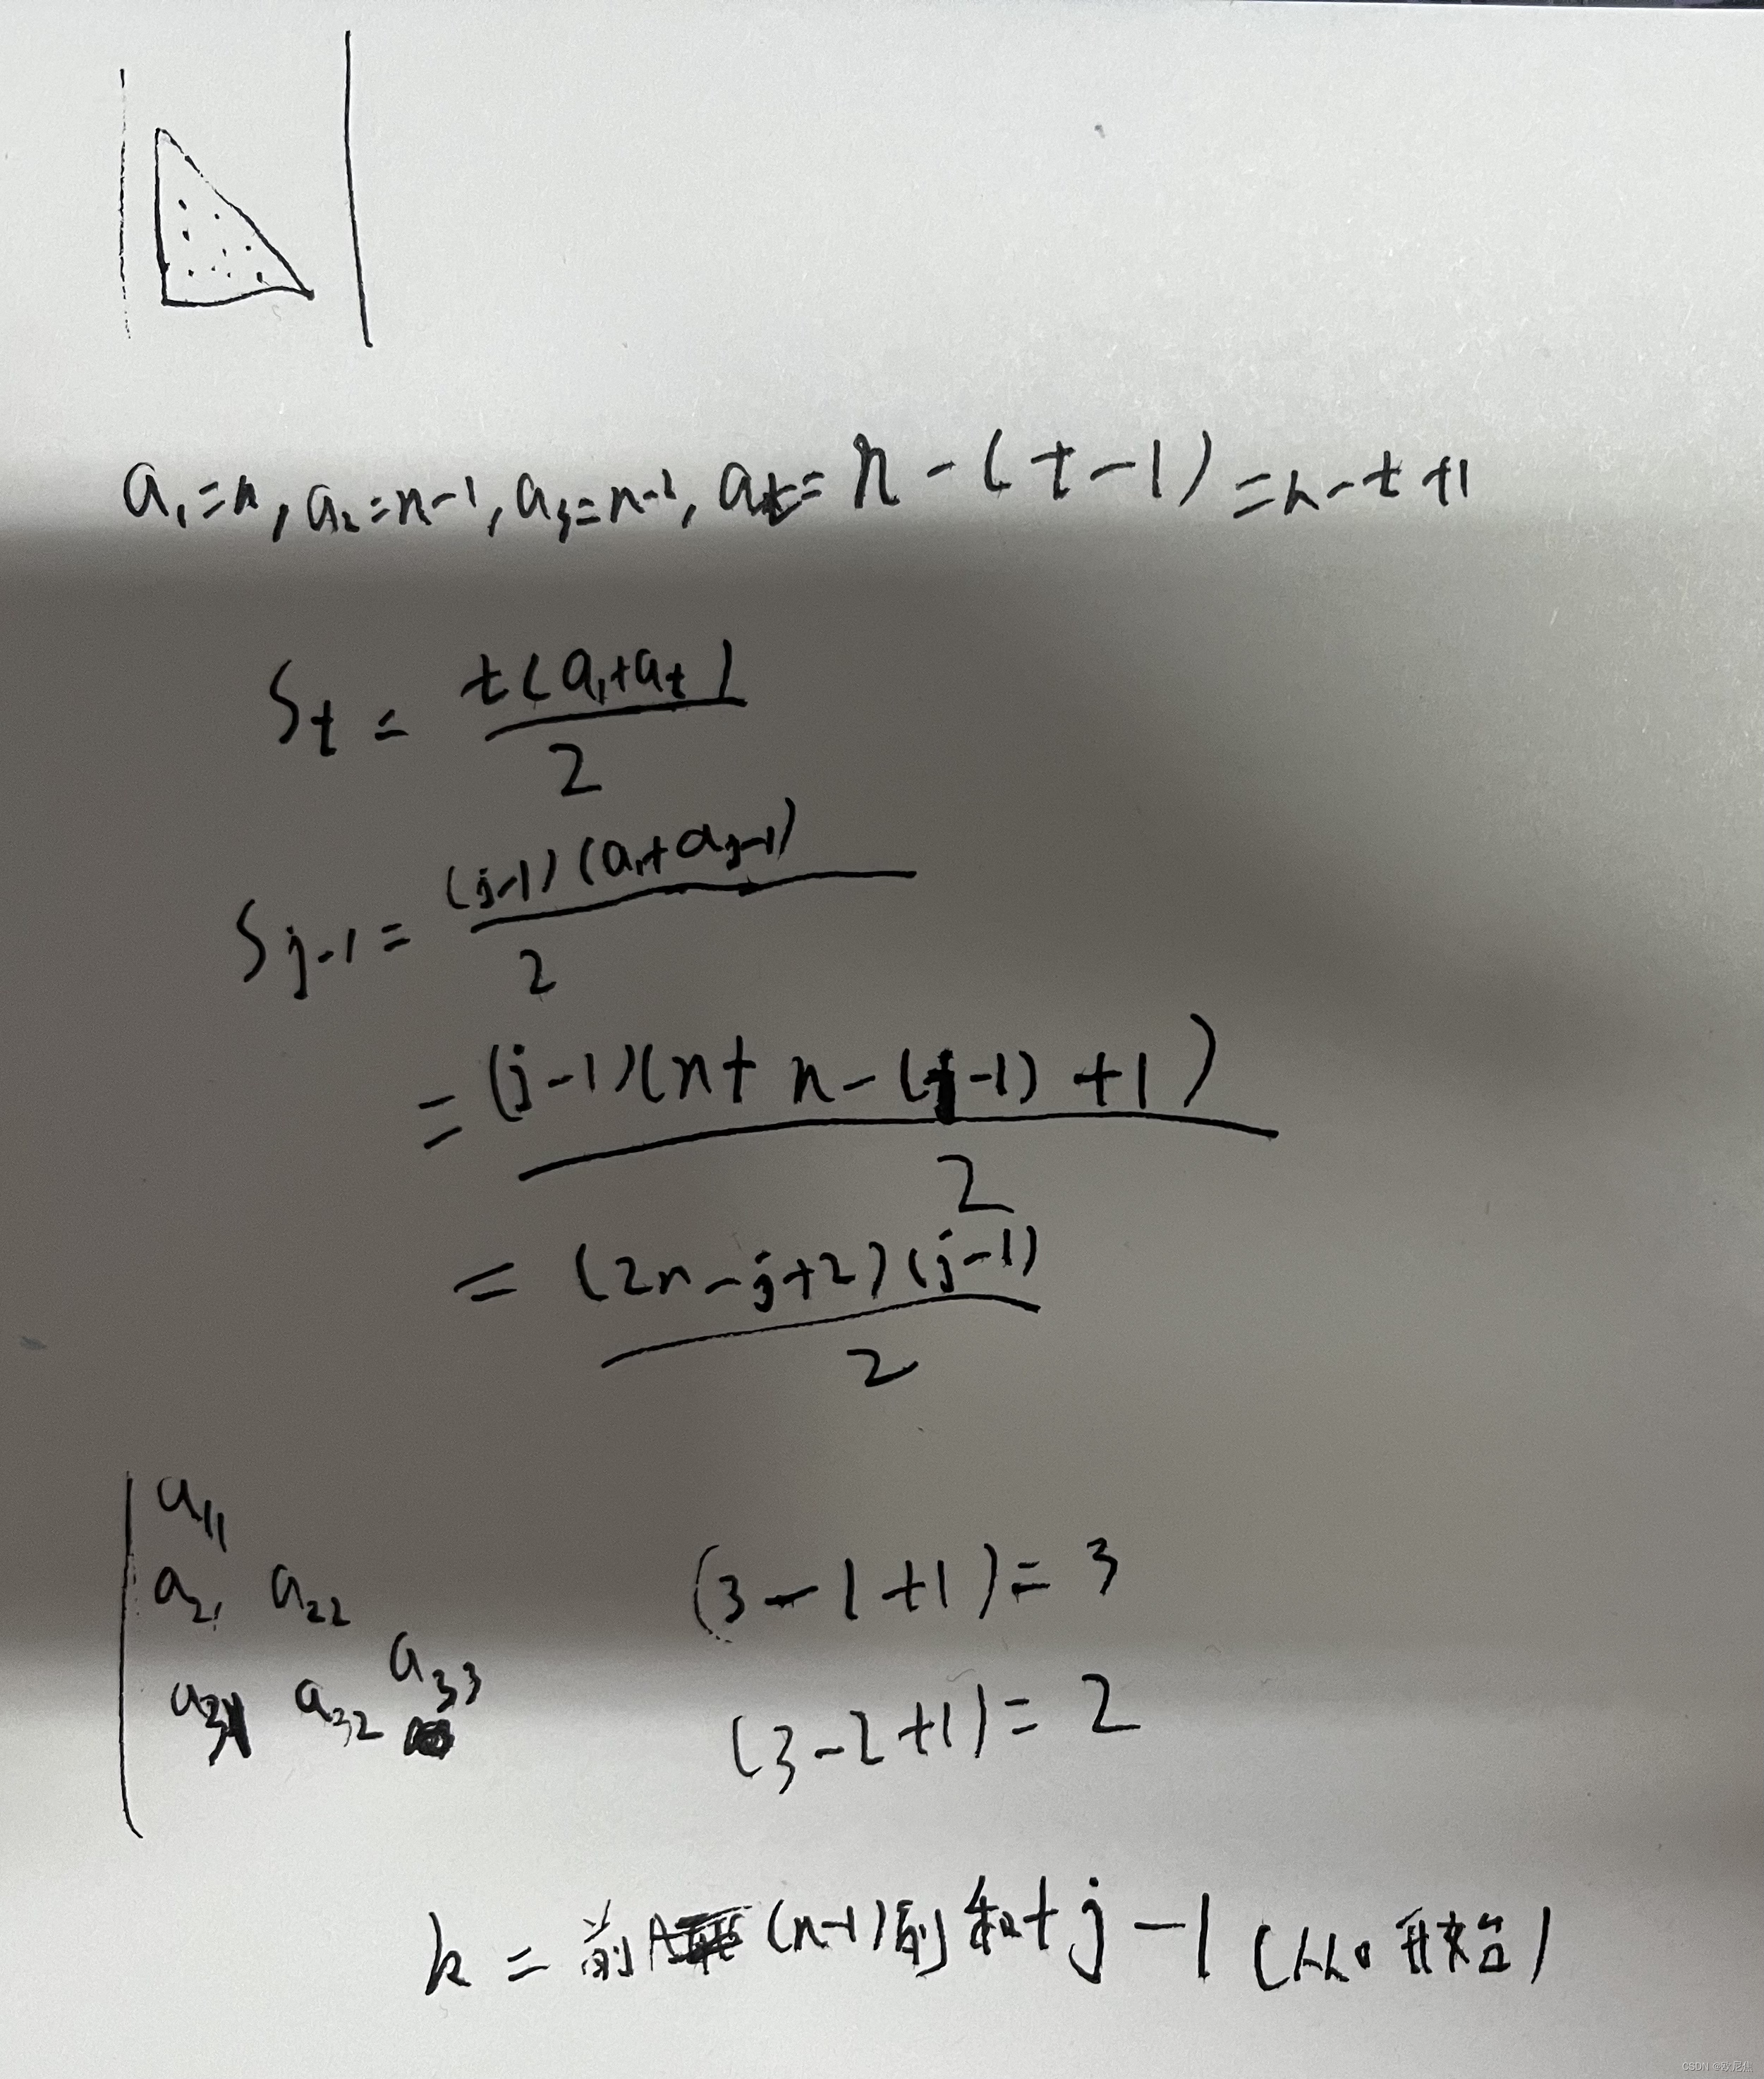 a₁=n, a₂=n-1, a₃=n-2, aₜ= n-(t-1) =n-t+1
Sₜ = t(a₁+aₜ)/2
Sⱼ₋₁ = (j-1)(a₁+aⱼ₋₁)/2
= (j-1)(n+n-(j-1)+1)/2
= (2n-j+2)(j-1)/2
a₁₁
a₂₁ a₂₂
(3-1+1)=3
a₃₁ a₃₂ a₃₃
(3-2+1)=2
k = 前 (n-1)列和+j-1 (从0开始)
CSDN @欧尼焦